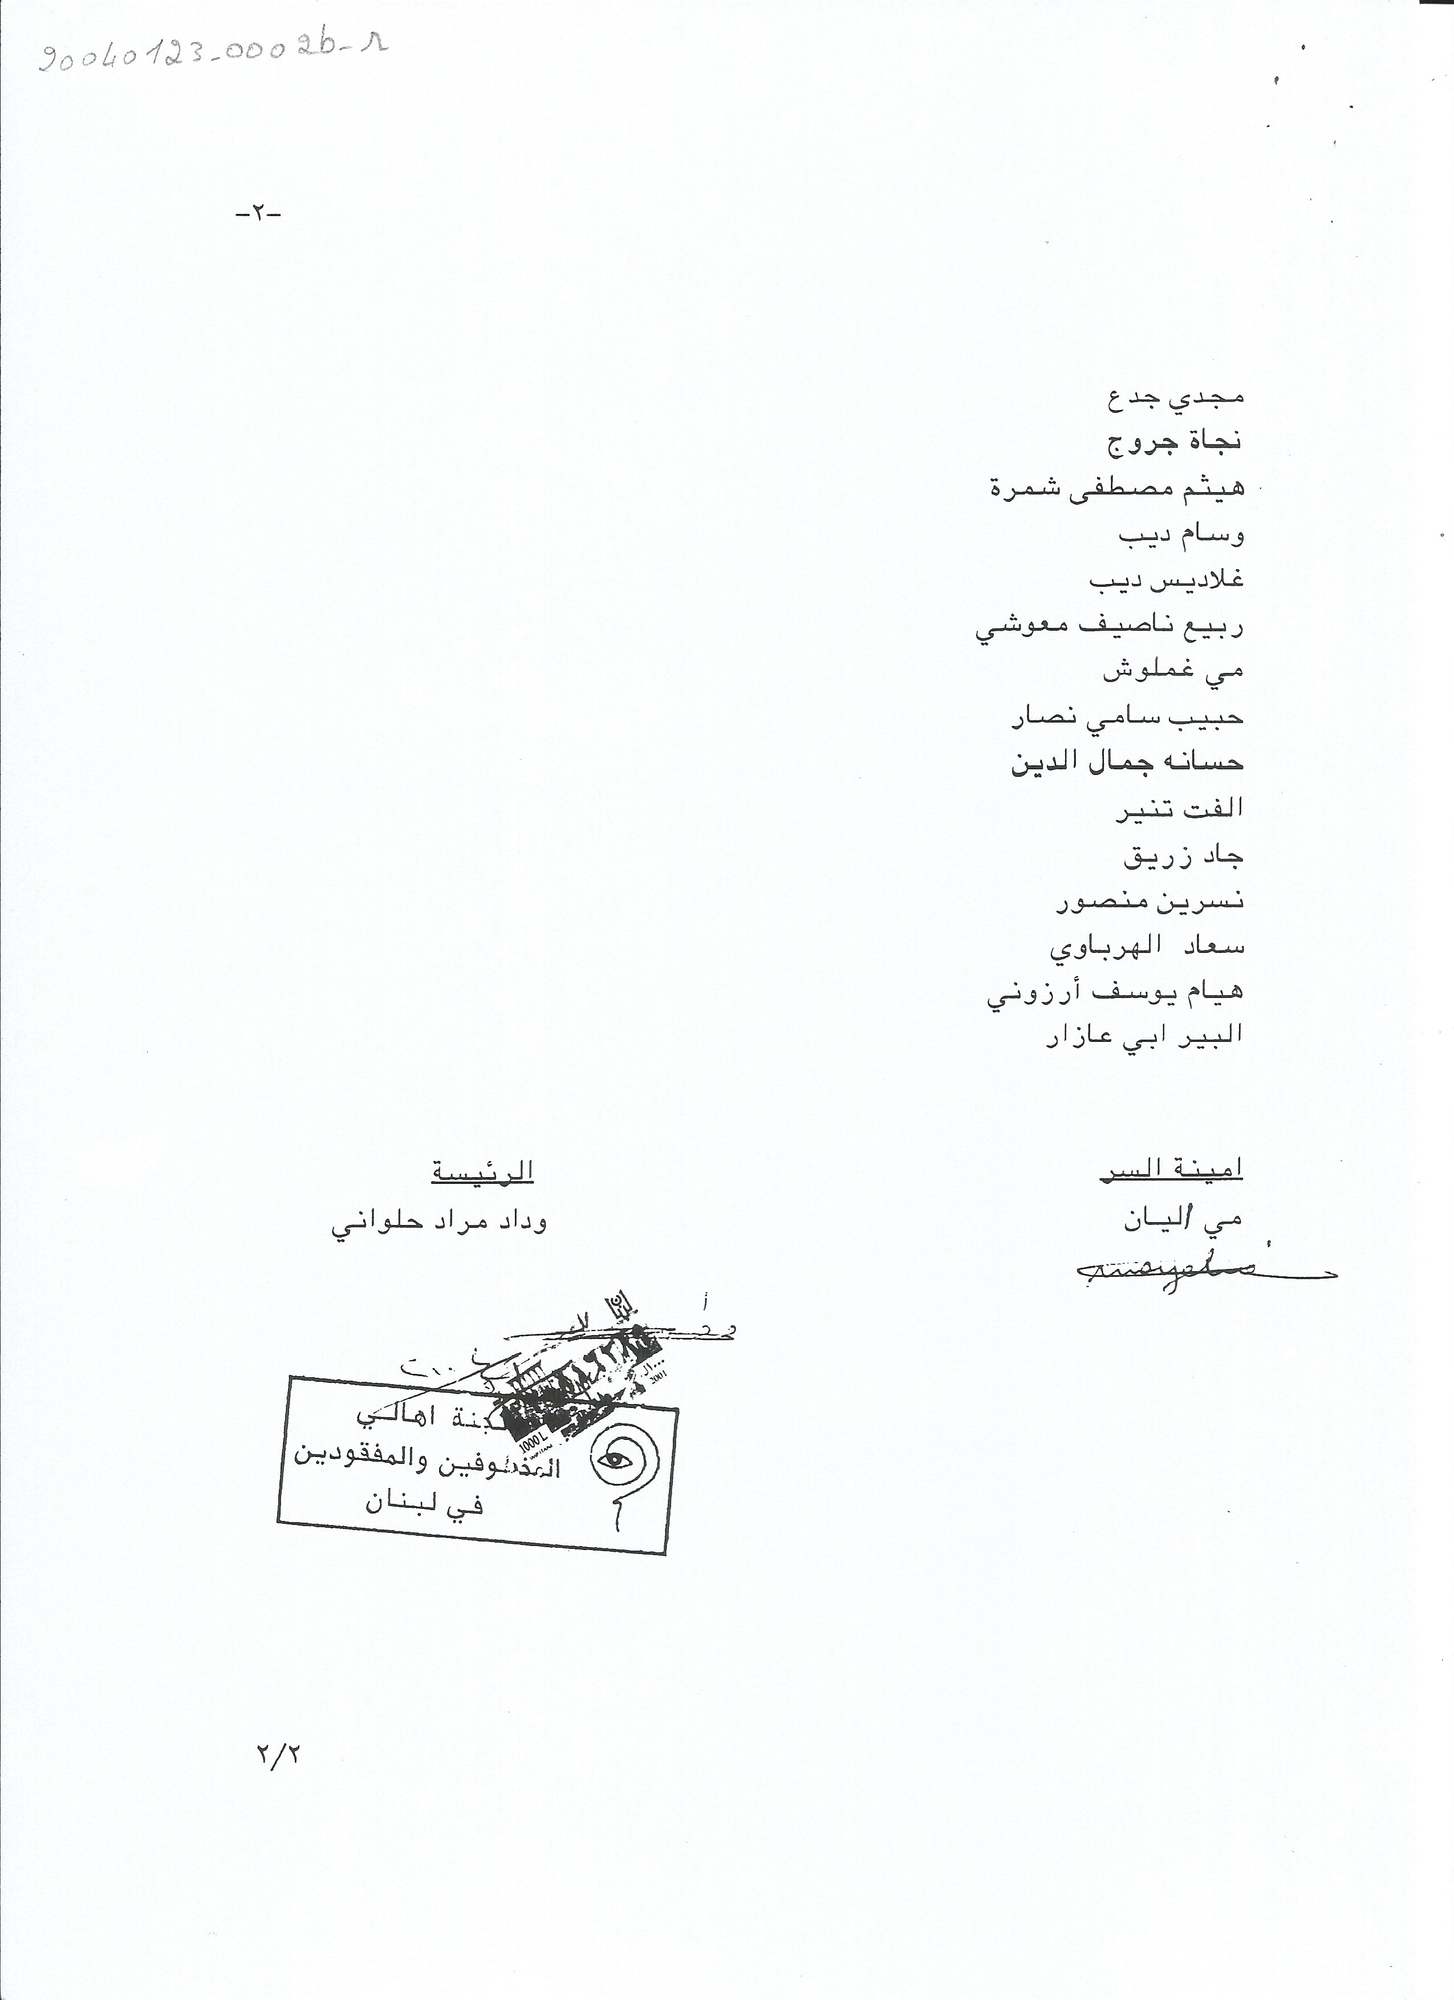 20040123-0002b-r
-٢-
مجدي جدع
نجاة جروج
هيثم مصطفى شمرة
وسام ديب
غلاديس ديب
ربيع ناصيف معوشي
مي غملوش
حبيب سامي نصار
حسانه جمال الدين
الفت تنير
جاد زريق
نسرين منصور
سعاد الهرباوي
هيام يوسف أرزوني
البير ابي عازار
امينة السر
الرئيسة
مي اليان
وداد مراد حلواني
لبنان
2001
1000 L
لجنة اهالي
المخطوفين والمفقودين
في لبنان
٢/٢